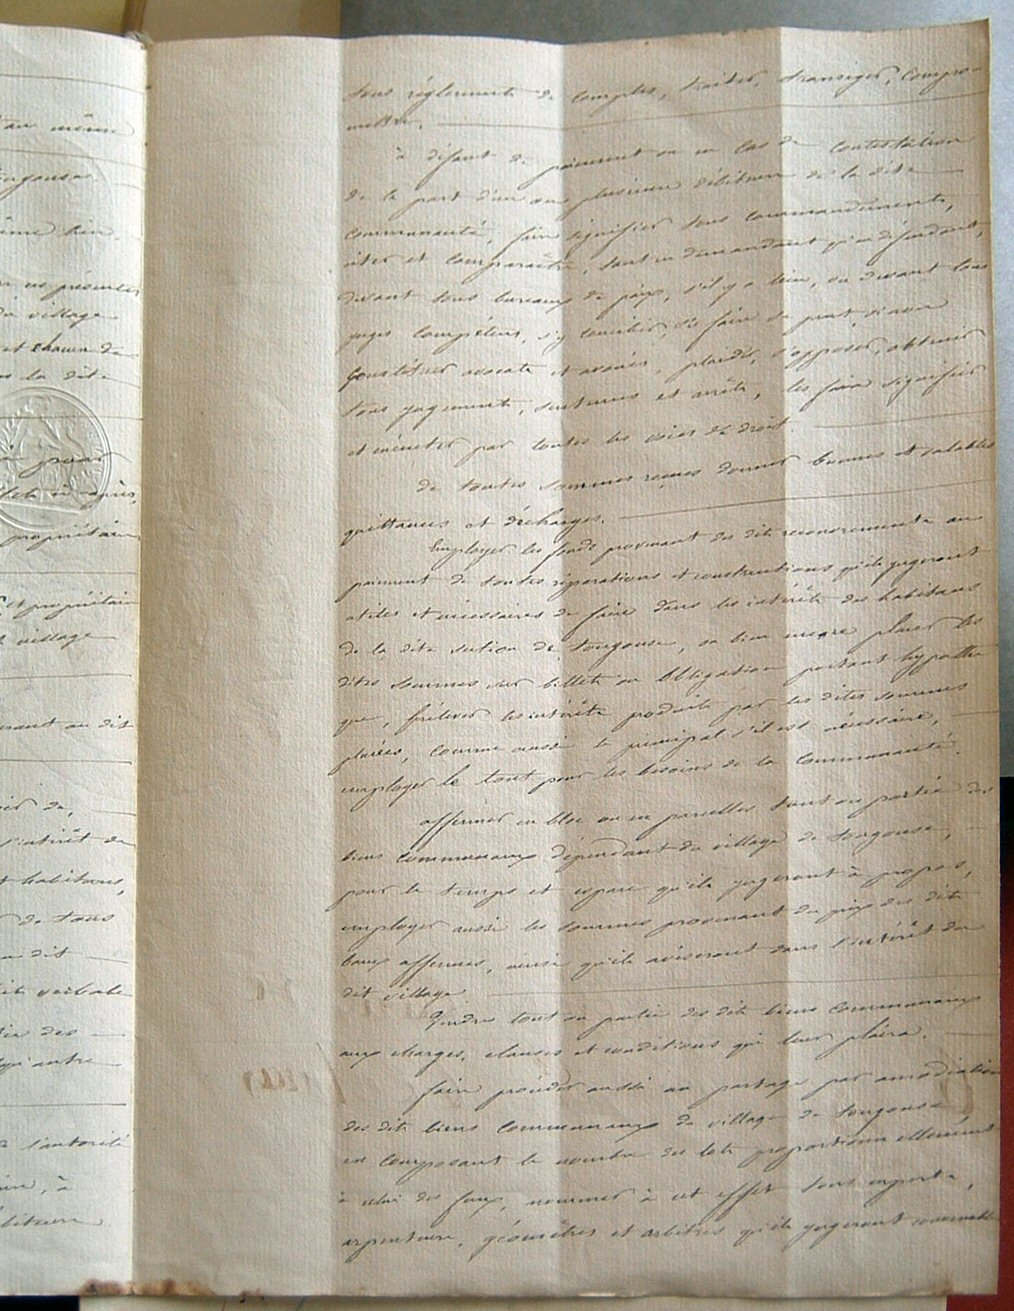 au même
Tougouse.
même bien
ces présentes
du village
et chacun de
la dite
pour
ci après,
propriétaire
et propriétaire
village
au dit
de,
l'intérêt de
habitans,
de tous
dit
verbale
des
qu'autre
l'autorité
à
débiteurs
tous réglements de comptes, traiter, transiger, compro-
mettre.
à défaut de paiement ou en cas de contestation
de la part d'un ou plusieurs débiteurs de la dite
communauté, faire signifier tous commandements,
citer et comparaître, tant en demandant qu'en défendant,
devant tous bureaux de paix, s'il y a lieu, ou devant tous
juges compétens, s'y concilier, si faire se peut, sinon
constituer avocats et avoués, plaider, s'opposer, obtenir
tous jugements, sentences et arrêts, les faire signifier
et exécuter par toutes les voies de droit.
de toutes sommes reçues donner bonnes et valables
quittances et décharges.
Employer les fonds provenant des dits recouvrements au
paiment de toutes réparations et constructions qu'ils jugeront
utiles et nécessaires de faire dans les intérêts des habitans
de la dite section de Tougouse, ou bien encore placer les
dites sommes sur billets ou obligation portant hypothè
que, prélever les intérêts produits par les dites sommes
placées, comme aussi le principal s'il est nécessaire,
employer le tout pour les besoins de la communauté.
affermer en bloc ou en parcelles tout ou partie des
biens communaux dépendant du village de Tougouse,
pour le temps et espace qu'ils jugeront à propos,
employer aussi les sommes provenant du prix des dits
baux affermes, ainsi qu'ils aviseront dans l'intérêt du
dit village.
Vendre tout ou partie des dits biens communaux
aux charges, clauses et conditions qui leur plaira.
faire procéder aussi au partage par amodiation
des dits biens communaux du village de Tougouse
en composant le nombre des lots proportionnellement
à celui des feux, nommer à cet effet tous experts,
arpenteurs, géomètres et arbitres qu'ils jugeront convenable